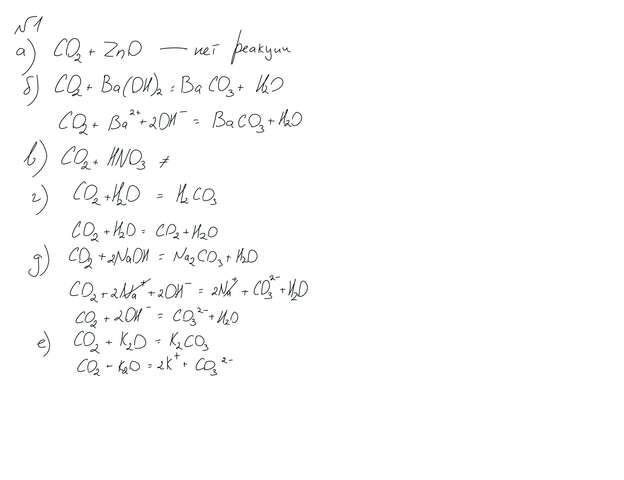 №1
а) CO₂ + ZnO — нет реакции
б) CO₂ + Ba(OH)₂ = BaCO₃ + H₂O
CO₂ + Ba²⁺ + 2OH⁻ = BaCO₃ + H₂O
в) CO₂ + HNO₃ ≠
г) CO₂ + H₂O = H₂CO₃
CO₂ + H₂O = CO₂ + H₂O
д) CO₂ + 2NaOH = Na₂CO₃ + H₂O
CO₂ + 2Na⁺ + 2OH⁻ = 2Na⁺ + CO₃²⁻ + H₂O
CO₂ + 2OH⁻ = CO₃²⁻ + H₂O
е) CO₂ + K₂O = K₂CO₃
CO₂ – K₂O = 2K⁺ + CO₃²⁻